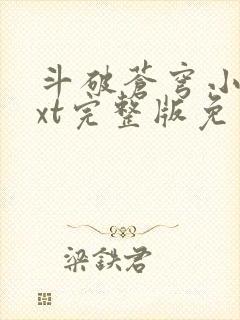 斗破苍穹小
xt完整版免
梁鉄君